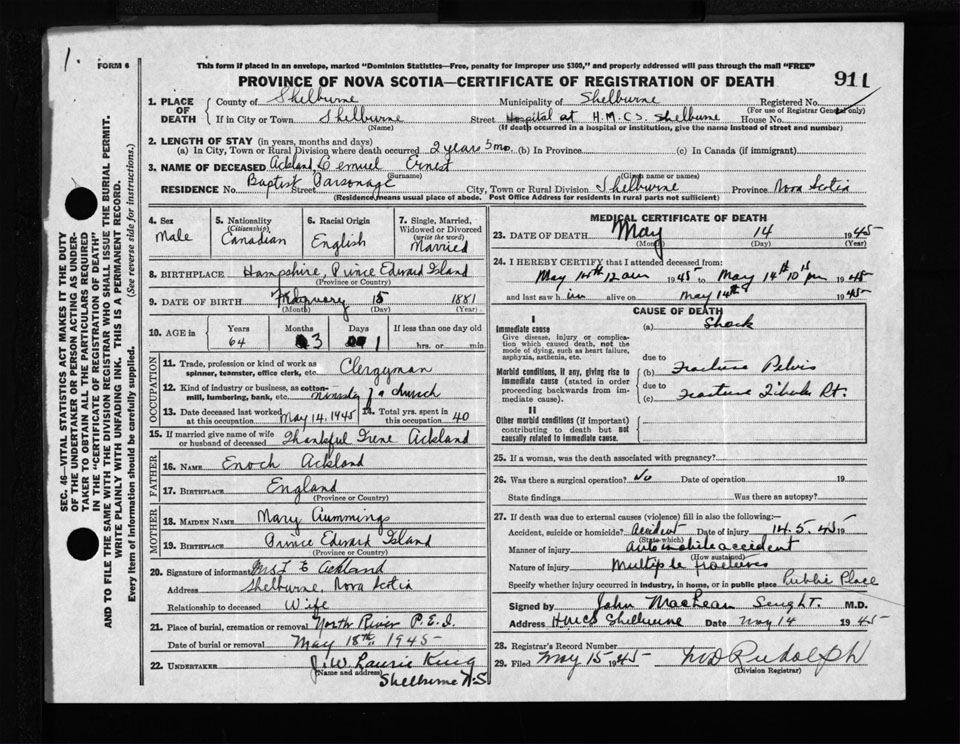 1.
FORM 6
This form if placed in an envelope, marked "Dominion Statistics—Free, penalty for improper use $300," and properly addressed will pass through the mail "FREE"
PROVINCE OF NOVA SCOTIA—CERTIFICATE OF REGISTRATION OF DEATH
911
SEC. 46—VITAL STATISTICS ACT MAKES IT THE DUTY
OF THE UNDERTAKER OR PERSON ACTING AS UNDER-
TAKER TO OBTAIN ALL THE PARTICULARS REQUIRED
IN THE "CERTIFICATE OF REGISTRATION OF DEATH"
AND TO FILE THE SAME WITH THE DIVISION REGISTRAR WHO SHALL ISSUE THE BURIAL PERMIT.
WRITE PLAINLY WITH UNFADING INK. THIS IS A PERMANENT RECORD.
Every item of information should be carefully supplied. (See reverse side for instructions.)
1. PLACE OF DEATH County of Shelburne Municipality of Shelburne Registered No.
(For use of Registrar General only)
If in City or Town Shelburne Street Hospital at H.M.C.S. Shelburne House No.
(Name) (If death occurred in a hospital or institution, give the name instead of street and number)
2. LENGTH OF STAY (in years, months and days)
(a) In City, Town or Rural Division where death occurred 2 years 5 mo. (b) In Province (c) In Canada (if immigrant)
3. NAME OF DECEASED Ackland Lemuel Ernest
(Surname) (Given name or names)
RESIDENCE No. Street Baptist Parsonage City, Town or Rural Division Shelburne Province Nova Scotia
(Residence means usual place of abode. Post Office Address for residents in rural parts not sufficient)
4. Sex Male
5. Nationality (Citizenship) Canadian
6. Racial Origin English
7. Single, Married, Widowed or Divorced (write the word) Married
8. BIRTHPLACE Hampshire, Prince Edward Island
(Province or Country)
9. DATE OF BIRTH February 15 1881
(Month) (Day) (Year)
10. AGE in Years Months Days If less than one day old
64 3 1 hrs. or min.
OCCUPATION
11. Trade, profession or kind of work as spinner, teamster, office clerk, etc. Clergyman
12. Kind of industry or business, as cotton-mill, lumbering, bank, etc. minister of a church
13. Date deceased last worked at this occupation May 14, 1945 14. Total yrs. spent in this occupation 40
15. If married give name of wife or husband of deceased Thankful Irene Ackland
FATHER
16. NAME Enoch Ackland
17. BIRTHPLACE England
(Province or Country)
MOTHER
18. MAIDEN NAME Mary Cummings
19. BIRTHPLACE Prince Edward Island
(Province or Country)
20. Signature of informant Mrs L E Ackland
Address Shelburne, Nova Scotia
Relationship to deceased Wife
21. Place of burial, cremation or removal North River P.E.I.
Date of burial or removal May 18th 1945
22. UNDERTAKER J. W. Laurie King
(Name and address) Shelburne N.S
MEDICAL CERTIFICATE OF DEATH
23. DATE OF DEATH May 14 1945
(Month) (Day) (Year)
24. I HEREBY CERTIFY that I attended deceased from:
May 12 am 1945 to May 14th 10 pm 1945
and last saw him alive on May 14th 1945
CAUSE OF DEATH
I
Immediate cause (a) Shock
Give disease, injury or complication which caused death, not the mode of dying, such as heart failure, asphyxia, asthenia, etc.
due to
Morbid conditions, if any, giving rise to immediate cause (stated in order proceeding backwards from immediate cause).
(b) Fracture Pelvis
due to
(c) Fracture Tibula Rt.
II
Other morbid conditions (if important) contributing to death but not causally related to immediate cause.
25. If a woman, was the death associated with pregnancy?
26. Was there a surgical operation? No Date of operation 19
State findings Was there an autopsy?
27. If death was due to external causes (violence) fill in also the following:—
Accident, suicide or homicide? Accident Date of injury 14.5.45 19
(State which)
Manner of injury automobile accident
(How sustained)
Nature of injury Multiple fractures
Specify whether injury occurred in industry, in home, or in public place Public Place
Signed by John MacLean M.D.
Address HMCS Shelburne Date May 14 1945
28. Registrar's Record Number
29. Filed May 15 1945 Rudolph
(Division Registrar)